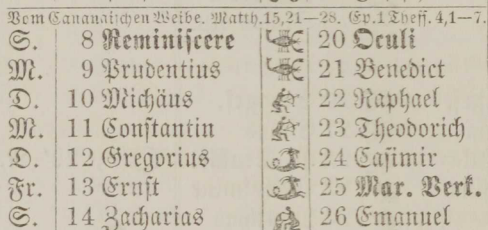 Vom Cananäischen Weibe. Matth. 15,21—28. Ep. 1 Thess. 4,1—7.
S. 8 Reminiscere 20 Oculi
M. 9 Prudentius 21 Benedict
D. 10 Michäus 22 Raphael
M. 11 Constantin 23 Theodorich
D. 12 Gregorius 24 Casimir
Fr. 13 Ernst 25 Mar. Verk.
S. 14 Zacharias 26 Emanuel